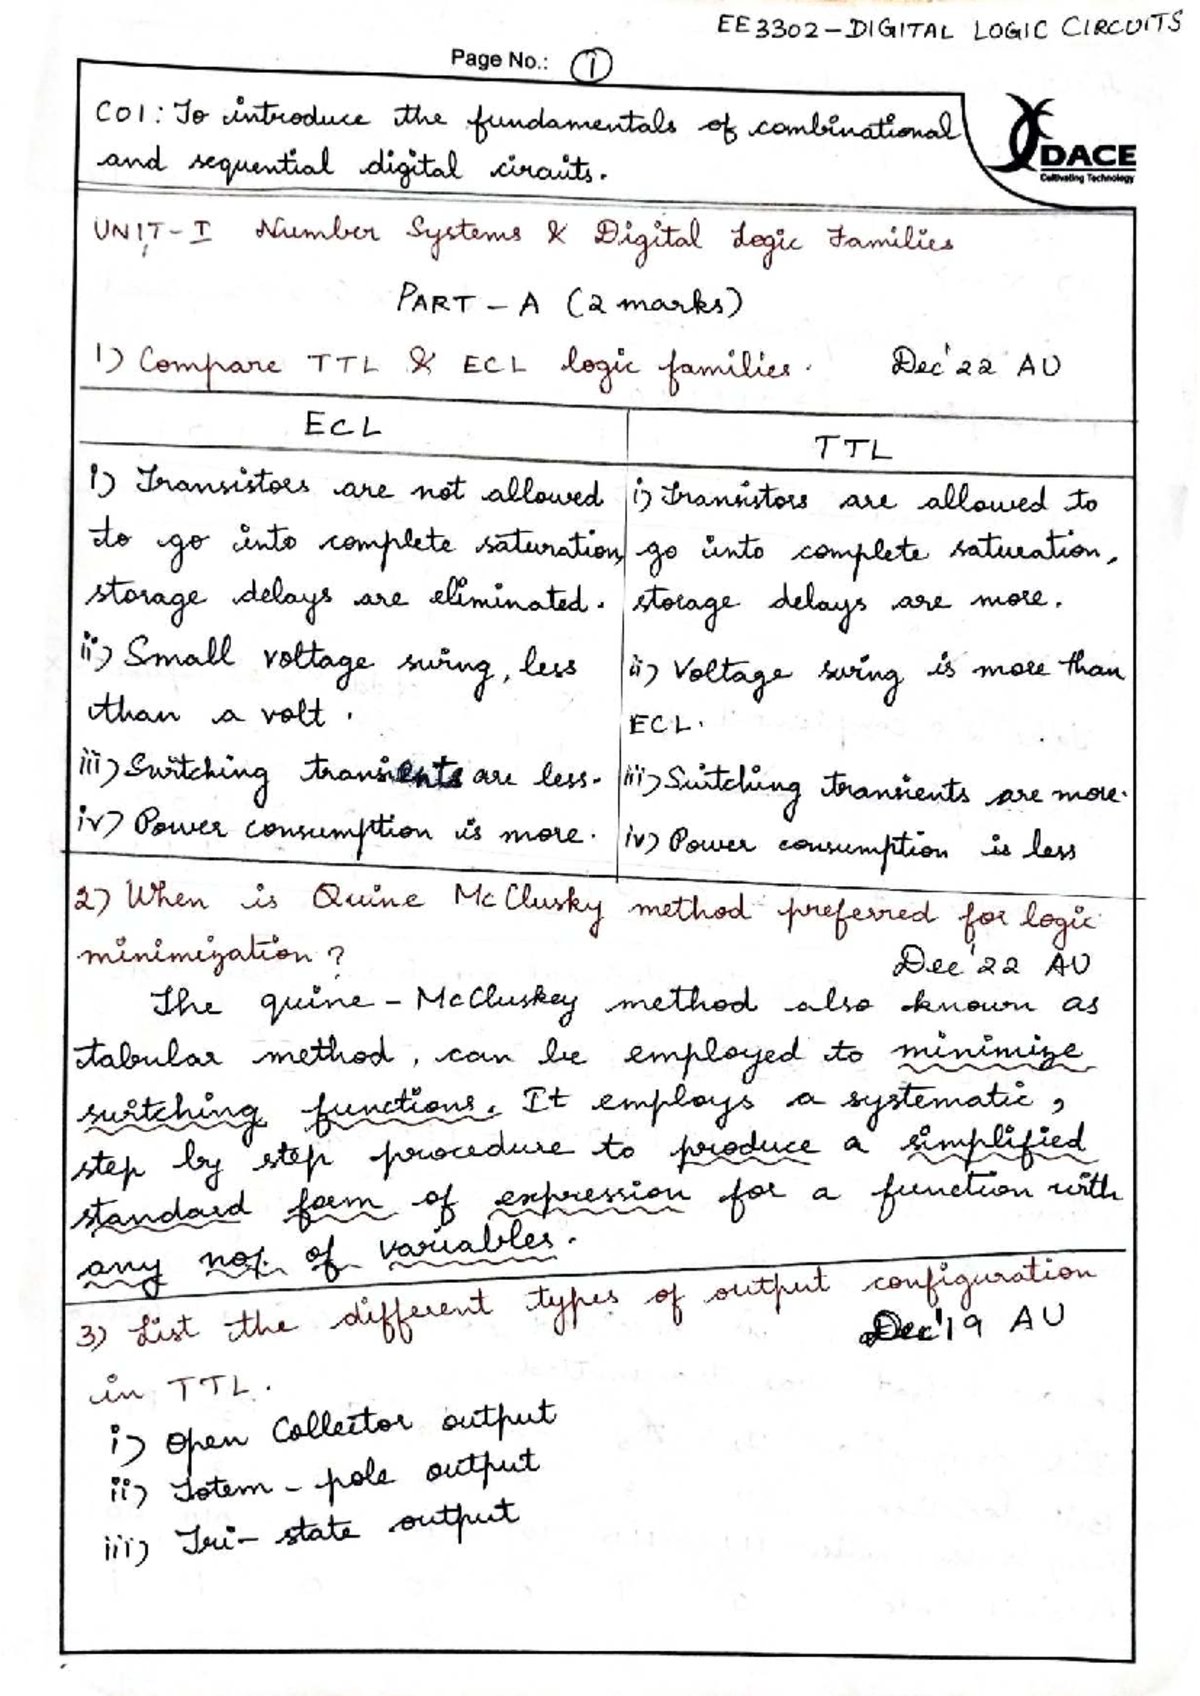 EE3302-DIGITAL LOGIC CIRCUITS
Page No.: 1
DACE
Cultivating Technology
CO1: To introduce the fundamentals of combinational
and sequential digital circuits.
UNIT-I Number Systems & Digital Logic Families
PART-A (2 marks)
1) Compare TTL & ECL logic families. Dec'22 AU
ECL
i) Transistors are not allowed
to go into complete saturation,
storage delays are eliminated.
ii) Small voltage swing, less
than a volt.
iii) Switching transients are less.
iv) Power consumption is more.
TTL
i) Transistors are allowed to
go into complete saturation,
storage delays are more.
ii) Voltage swing is more than
ECL.
iii) Switching transients are more.
iv) Power consumption is less
2) When is Quine McClusky method preferred for logic
minimization? Dec'22 AU
The quine-McCluskey method also known as
tabular method, can be employed to minimize
switching functions. It employs a systematic,
step by step procedure to produce a simplified
standard form of expression for a function with
any no. of variables.
3) List the different types of output configuration
in TTL. Dec'19 AU
i) Open Collector output
ii) Totem-pole output
iii) Tri-state output